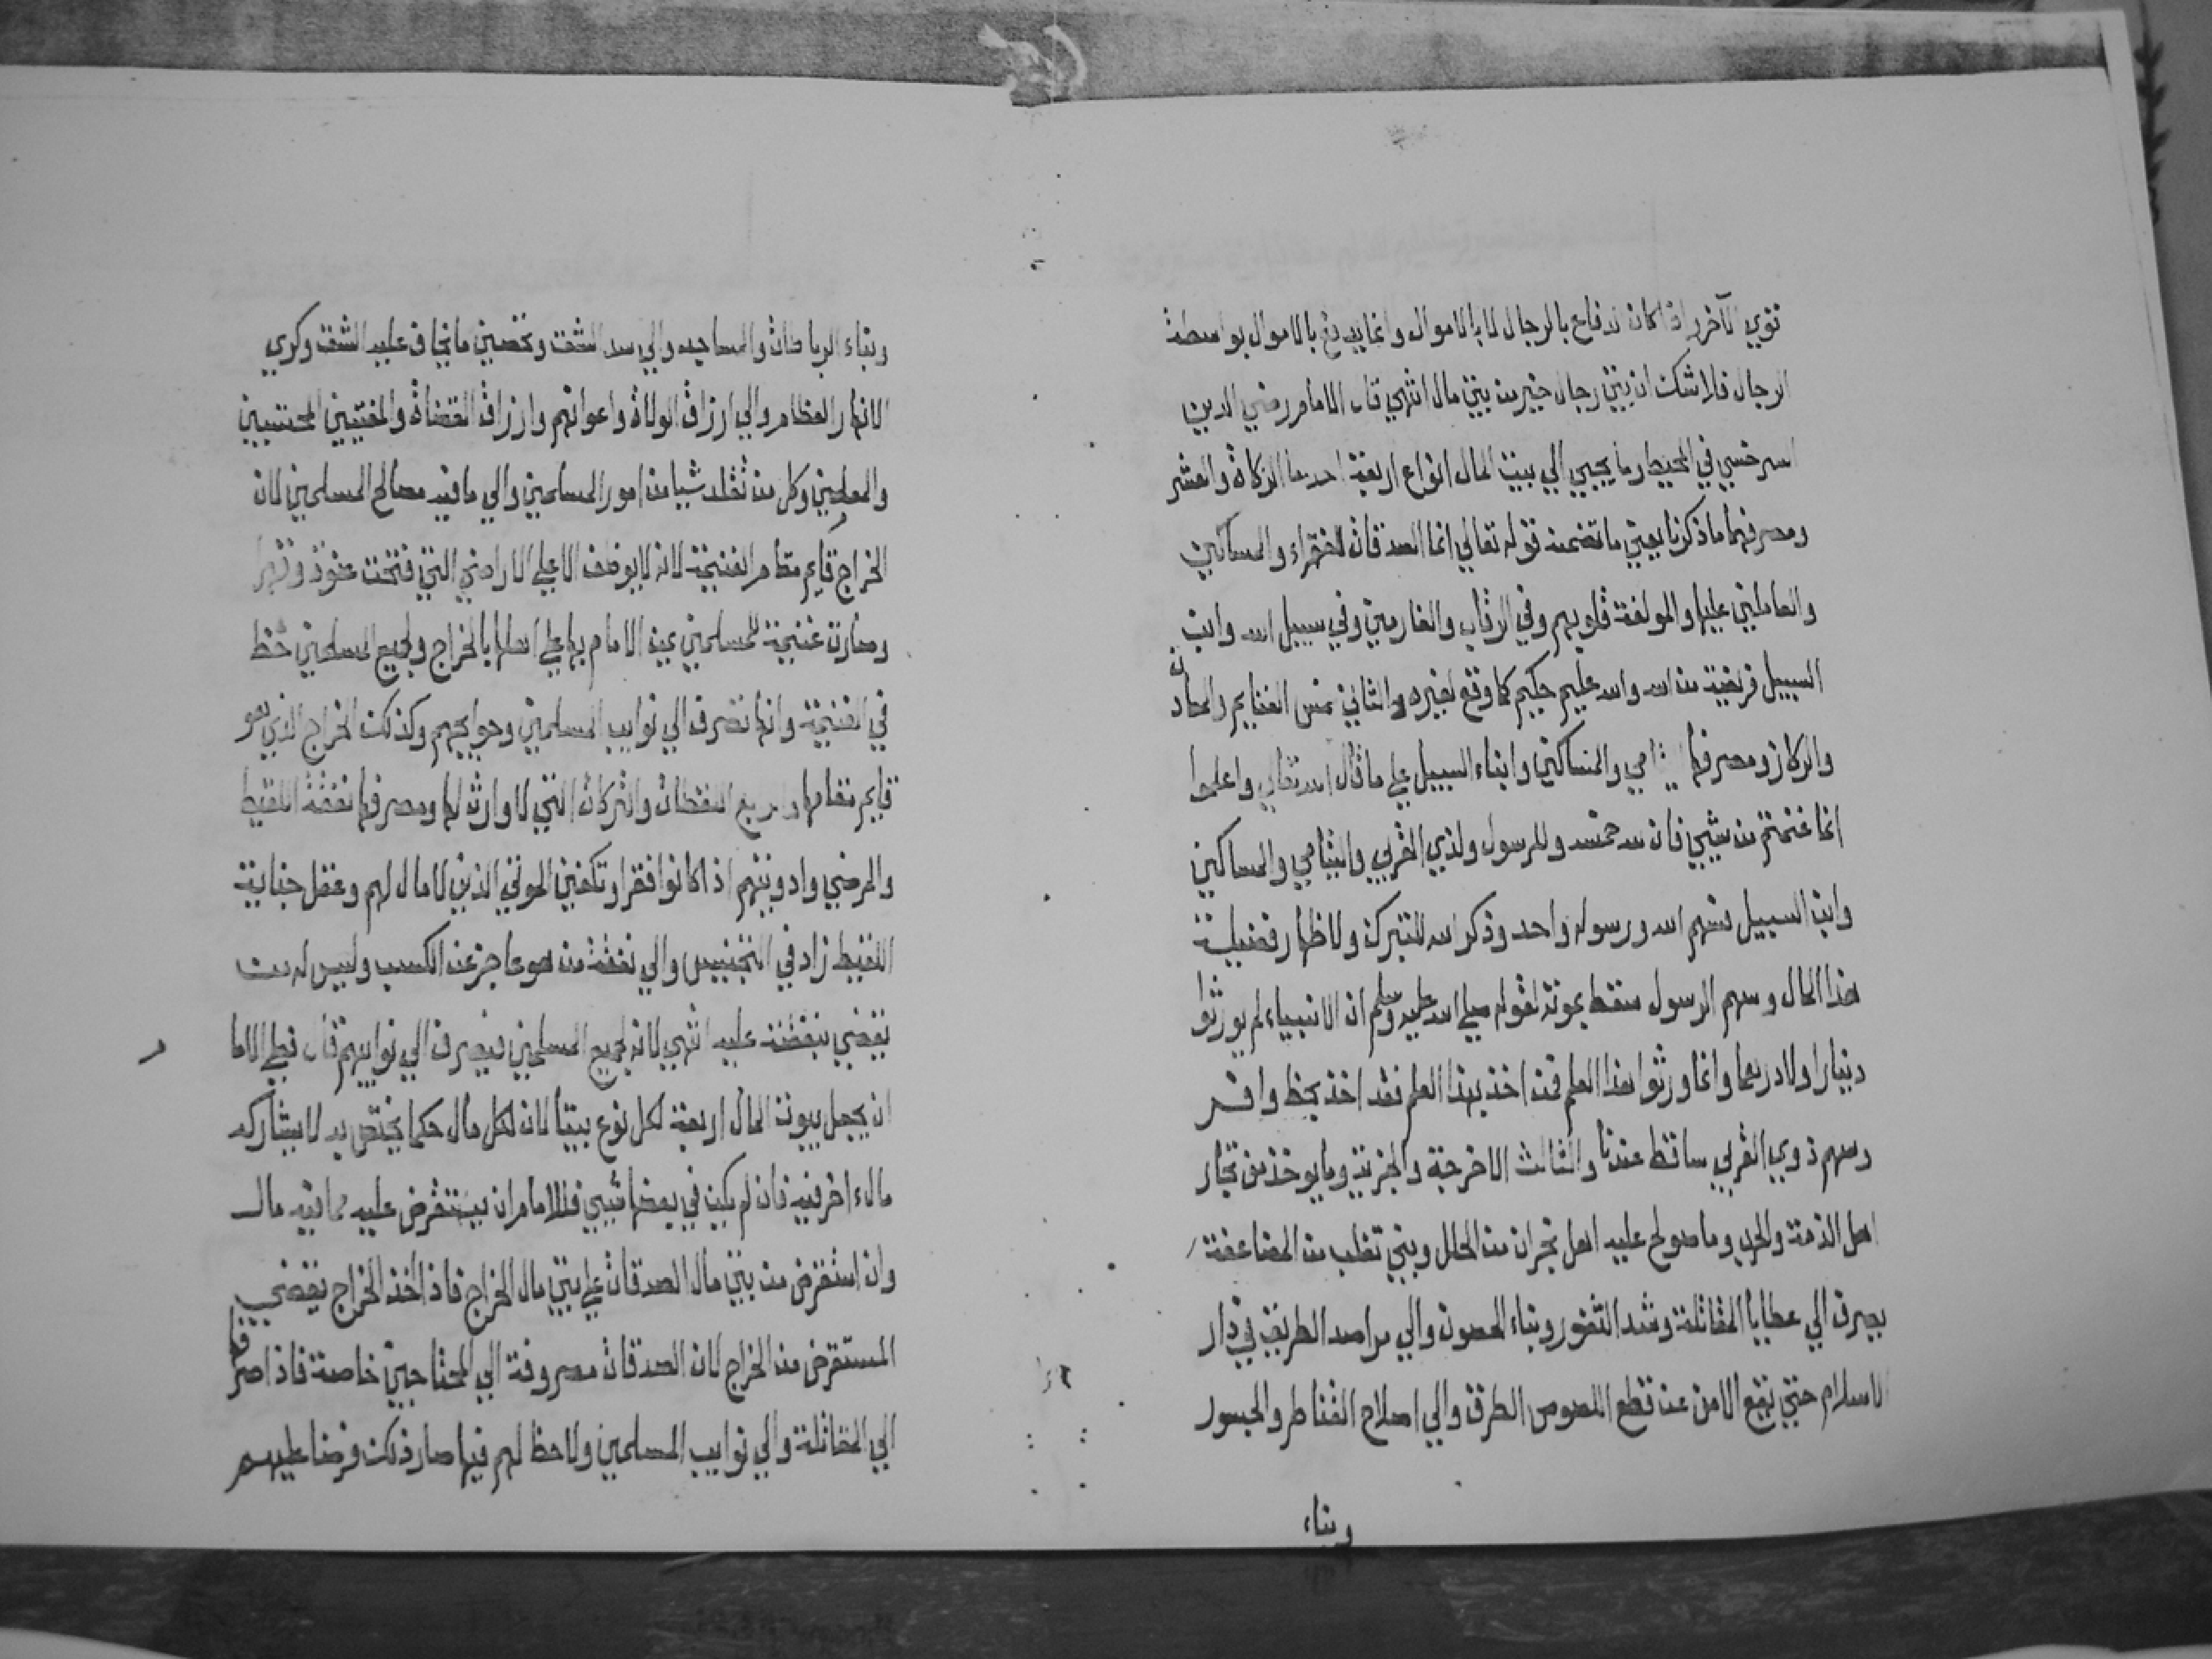 توي الآخر اذا كان ندفاع بالرجال لا بالاموال وانما يدفع بالاموال بواسطة
الرجال فلا شك ان بيتي رجال خير من بيتي مال انتهي قال الامام رضي الدين
السرخسي في المحيط وما يجبي الي بيت المال انواع اربعة احدها الزكاة والعشر
ومصرفهما ما ذكرنا يعني ما تضمنه قوله تعالي انما الصدقات للفقراء والمساكين
والعاملين عليها والمولفة قلوبهم وفي الرقاب والغارمين وفي سبيل الله وابن
السبيل فريضة من الله والله عليم حكيم كما وقع لغيره والثاني خمس الغنايم والمعادن
والركاز ومصرفها والمساكين وابناء السبيل علي ما قال الله تعالي واعلموا
انما غنمتم من شيي فان لله خمسه وللرسول ولذي القربي واليتامي والمساكين
وابن السبيل فسهم الله ورسوله واحد وذكر الله للتبرك ولاظهار فضيلة
هذا المال وسهم الرسول سقط بموته لقوله صلي الله عليه وسلم ان الانبياء لم يورثوا
دينارا ولا درهما وانما ورثوا هذا العلم فمن اخذ بهذا العلم فقد اخذ بحظ وافر
وسهم ذوي القربي ساقط عندنا والثالث الاخرجة والجزية وما يوخذ من تجار
اهل الذمة والحرب وما صولح عليه اهل نجران من الحلل وبني تغلب من المضاعفة
يصرف الي عطايا المقاتلة وسد الثغور وبناء الحصون والي مراصد الطريق في دار
الاسلام حتي يقع الامن عند قطع اللصوص الطرق والي اصلاح القناطر والجسور
وبناء
وبناء الرباطات والمساجد والي سد الشق وتحصين ما يخاف عليه الشق وكري
الانهار العظام والي ارزاق الولاة واعوانهم وارزاق القضاة والمفتيين المحتسبين
والمعلمين وكل من تقلد شيا من امور المسلمين والي ما فيه مصالح المسلمين لان
الخراج قايم مقام الغنيمة لانه لا يوضف الا علي الاراضي التي فتحت عنوة وقهرا
وصارت غنيمة للمسلمين يمن الامام بها علي اهلها بالخراج ولجميع المسلمين حظ
في الغنيمة وانها تصرف الي نوايب المسلمين وحوايجهم وكذلك الخراج الذي هو
قايم مقامها والرابع اللقطات والتركات التي لا وارث لها ومصرفها نفقة اللقيط
والمرضي وادويتهم اذا كانوا فقرا وتكفين الموتي الذين لا مال لهم وعقل جناية
اللقيط زاد في التجنيس والي نفقة من هو عاجز عند الكسب وليس له من
يقضي بنفقته عليه انتهي لانه لجميع المسلمين فيصرف الي نوايبهم قال فعلي الاما
م
ان يجعل بيوت المال اربعة لكل نوع بيتا لان لكل مال حكما يختص به لا يشاركه
مال اخر فيه فان لم يكن في بعضها شيي فللامام ان يستقرض عليه مما فيه مال
وان استقرض من بيتي مال الصدقات علي بيتي مال الخراج فاذا اخذ الخراج يقضي
المستقرض من الخراج لان الصدقات مصروفة الي المحتاجين خاصة فاذا صرفها
الي المقاتلة والي نوايب المسلمين ولا حظ لهم فيها صار ذلك قرضا عليهم